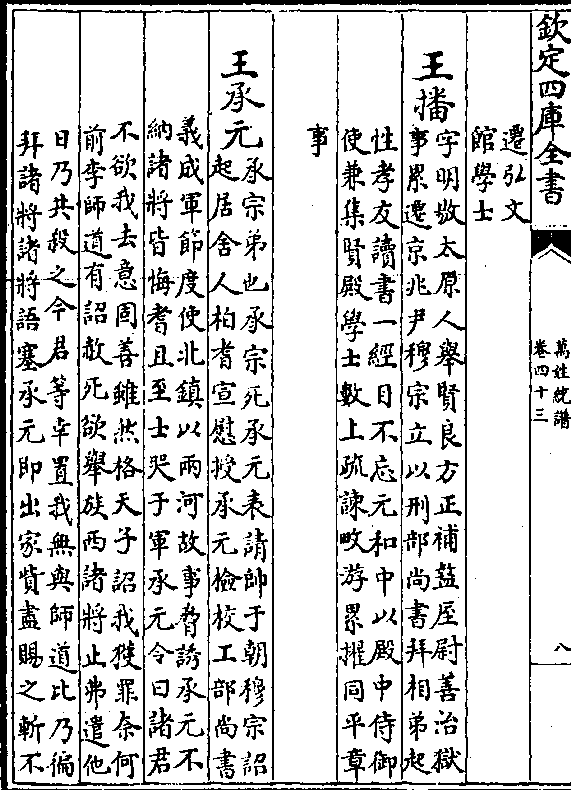 欽定四庫全書
萬姓統譜
卷四十三
八
遷弘文
館學士
王播
字明敭太原人舉賢良方正補盩厔尉善治獄
事累遷京兆尹穆宗立以刑部尚書拜相弟起
性孝友讀書一經目不忘元和中以殿中侍御
使兼集賢殿學士數上疏諫畋游累擢同平章
事
王承元
承宗弟也承宗死承元表請帥于朝穆宗詔
起居舍人柏耆宣慰授承元檢校工部尚書
義成軍節度使北鎮以兩河故事脅誘承元不
納諸將皆悔耆且至士哭于軍承元令曰諸君
不欲我去意固善雖然格天子詔我獲罪奈何
前李師道有詔赦死欲舉族西諸將止弗遣他
日乃共殺之今君等幸置我無與師道比乃徧
拜諸將諸將語塞承元即出家貲盡賜之斬不